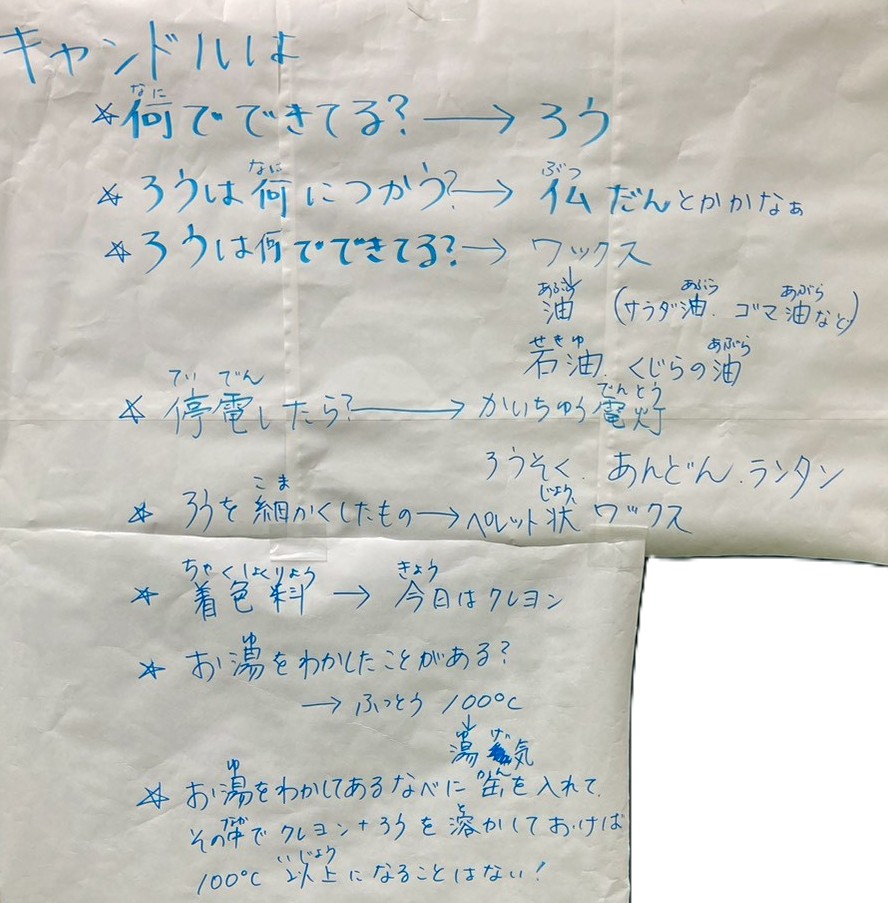 キャンドルは
☆何でできてる?→ろう
なに
☆ろうは何につかう?→仏だんとかかなぁ
なに ぶつ
☆ろうは何でできてる?→ワックス
↓
油(サラダ油.ゴマ油など)
あぶら あぶら あぶら
石油.くじらの油
せきゆ あぶら
☆停電したら?→かいちゅう電灯
てい でん でんとう
ろうそく.あんどん.ランタン
☆ろうを細かくしたもの→ペレット状 ワックス
こま じょう
☆着色料→今日はクレヨン
ちゃくしょくりょう きょう
☆お湯をわかしたことがある?
ゆ
→ふっとう 100℃
↓
湯気
ゆ げ
☆お湯をわかしてあるなべに缶を入れて.
ゆ かん
その中でクレヨン+ろうを溶かしておけば
なか と
100℃ 以上になることはない!
いじょう